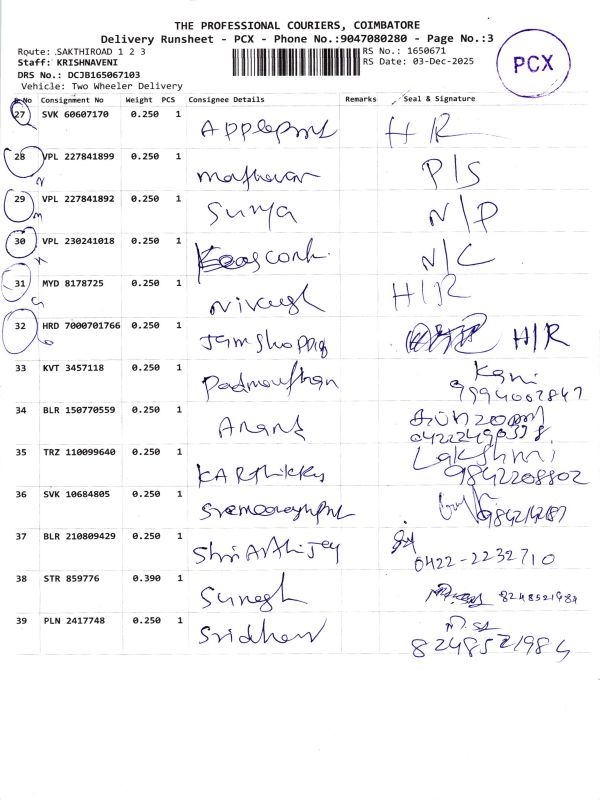 THE PROFESSIONAL COURIERS, COIMBATORE
Delivery Runsheet - PCX - Phone No.:9047080280 - Page No.:3
Route: SAKTHIROAD 1 2 3 RS No.: 1650671
Staff: KRISHNAVENI RS Date: 03-Dec-2025
DRS No.: DCJB165067103
Vehicle: Two Wheeler Delivery
PCX
S.No Consignment No Weight PCS Consignee Details Remarks Seal & Signature
27 SVK 60607170 0.250 1 H R
28 VPL 227841899 0.250 1 P/S
29 VPL 227841892 0.250 1 Surya N/P
30 VPL 230241018 0.250 1 N/C
31 MYD 8178725 0.250 1 H/R
32 HRD 7000701766 0.250 1 H/R
33 KVT 3457118 0.250 1 Kani
9994002847
34 BLR 150770559 0.250 1 Anand
35 TRZ 110099640 0.250 1 Lakshmi
9842208802
36 SVK 10684805 0.250 1
37 BLR 210809429 0.250 1
0422-2232710
38 STR 859776 0.390 1 Suresh 8248521984
39 PLN 2417748 0.250 1 Sridhar
8248521984